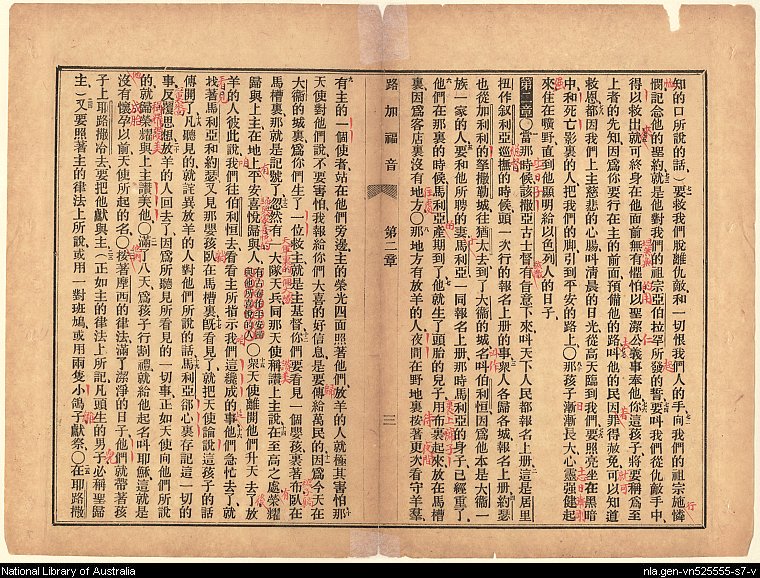 知的口所說的話)要救我們脫離仇敵和一切恨我們人的手向我們的祖宗施憐
憫記念他的聖約就是他對我們的祖宗亞伯拉罕所發的誓要叫我們從仇敵手中
得以救出就可終身在他面前無有懼怕以聖潔公義事奉他你這孩子將要稱爲至
上者的先知因爲你要行在主的面前預備他的路叫他的民因罪得赦免可以知道
救恩都因我們上主慈悲的心腸叫淸晨的日光從高天臨到我們要照亮坐在黑暗
中和死亡影裏的人把我們的脚引到平安的路上〇那孩子漸漸長大心靈強健起
來住在曠野直到他顯明給以色列人的日子
第二章〇當那時候該撒亞古士督有旨意下來叫天下人民都報名上册這是居里
扭作叙利亞巡撫的時候頭一次行的報名上册的事衆人各歸各城報名上册約瑟
也從加利利的拏撒勒城往猶太去到了大衞的城名叫伯利恒因爲他本是大衞一
族一家的人要和他所聘的妻馬利亞一同報名上册那時馬利亞的身子已經重了
他們在那裏的時候馬利亞產期到了他就生了頭胎的兒子用布裹起來放在馬槽
裏因爲客店裏沒有地方〇那地方有放羊的人夜間在野地裏按著更次看守羊羣
路加福音
第二章
三
有主的一個使者站在他們旁邊主的榮光四面照著他們放羊的人就極其害怕那
天使對他們說不要害怕我報給你們大喜的好信息是要傳給萬民的因爲今天在
大衞的城裏爲你們生了一位救主就是主基督你們要看見一個嬰孩裹著布臥在
馬槽裏那就是記號了忽然有一大隊天兵同那天使稱讚上主說在至高之處榮耀
歸與上主在地上平安喜悅歸與人〇衆天使離開他們升天去了放
羊的人彼此說我們往伯利恒去看看主所指示我們這纔成的事他們急忙去了就
找著馬利亞和約瑟又見那嬰孩臥在馬槽裏旣看見了就把天使論說這孩子的話
傳開了凡聽見的就詫異放羊的人對他們所說的話馬利亞卻心裏存記這一切的
事又覆思想放羊的人回去了因爲所聽見所看見的一切事正如天使向他們所說
的就歸榮耀與上主讚美他〇滿了八天爲孩子行割禮就給他起名叫耶穌這就是
沒有懷孕以前天使所起的名〇按著摩西的律法滿了潔淨的日子他們就帶著孩
子上耶路撒冷去要把他獻與主(正如主的律法上所記凡頭生的男子必稱聖歸
主)又要照著主的律法上所說或用一對班鳩或用兩隻小鴿子獻祭〇在耶路撒
National Library of Australia
nla.gen-vn525555-s7-v